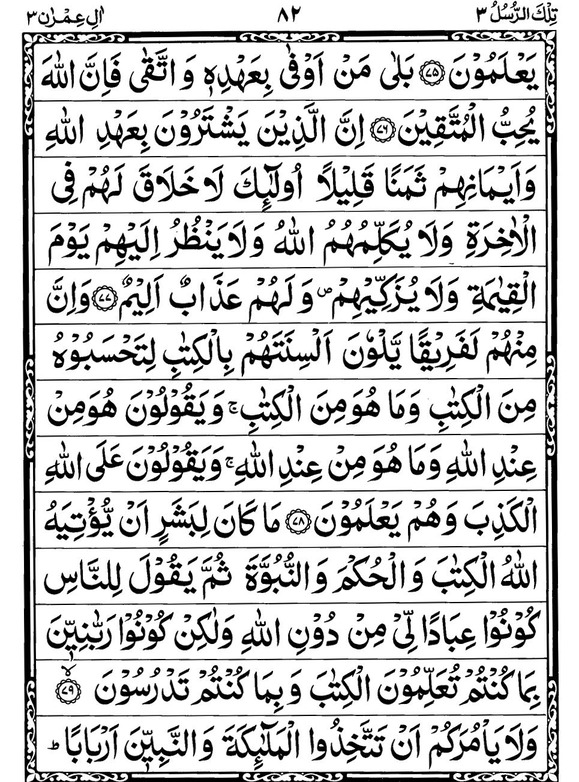 تِلْكَ الرُّسُلُ ٣ ٨٢ اٰلِ عِمْرٰن ٣
يَعْلَمُوْنَ ﴿٧٥﴾ بَلٰى مَنْ اَوْفٰى بِعَهْدِهٖ وَ اتَّقٰى فَاِنَّ اللّٰهَ
يُحِبُّ الْمُتَّقِيْنَ ﴿٧٦﴾ اِنَّ الَّذِيْنَ يَشْتَرُوْنَ بِعَهْدِ اللّٰهِ
وَاَيْمَانِهِمْ ثَمَنًا قَلِيْلًا اُولٰٓئِكَ لَا خَلَاقَ لَهُمْ فِى
الْاٰخِرَةِ وَلَا يُكَلِّمُهُمُ اللّٰهُ وَلَا يَنْظُرُ اِلَيْهِمْ يَوْمَ
الْقِيٰمَةِ وَلَا يُزَكِّيْهِمْ ۖ وَلَهُمْ عَذَابٌ اَلِيْمٌ ﴿٧٧﴾ وَاِنَّ
مِنْهُمْ لَفَرِيْقًا يَّلْوٗنَ اَلْسِنَتَهُمْ بِالْكِتٰبِ لِتَحْسَبُوْهُ
مِنَ الْكِتٰبِ وَمَا هُوَ مِنَ الْكِتٰبِ ۚ وَيَقُوْلُوْنَ هُوَ مِنْ
عِنْدِ اللّٰهِ وَمَا هُوَ مِنْ عِنْدِ اللّٰهِ ۚ وَيَقُوْلُوْنَ عَلَى اللّٰهِ
الْكَذِبَ وَهُمْ يَعْلَمُوْنَ ﴿٧٨﴾ مَا كَانَ لِبَشَرٍ اَنْ يُّؤْتِيَهُ
اللّٰهُ الْكِتٰبَ وَالْحُكْمَ وَالنُّبُوَّةَ ثُمَّ يَقُوْلَ لِلنَّاسِ
كُوْنُوْا عِبَادًا لِّىْ مِنْ دُوْنِ اللّٰهِ وَلٰكِنْ كُوْنُوْا رَبّٰنِيّٖنَ
بِمَا كُنْتُمْ تُعَلِّمُوْنَ الْكِتٰبَ وَبِمَا كُنْتُمْ تَدْرُسُوْنَ ۙ﴿٧٩﴾
وَلَا يَاْمُرَكُمْ اَنْ تَتَّخِذُوا الْمَلٰٓئِكَةَ وَالنَّبِيّٖنَ اَرْبَابًا ؕ